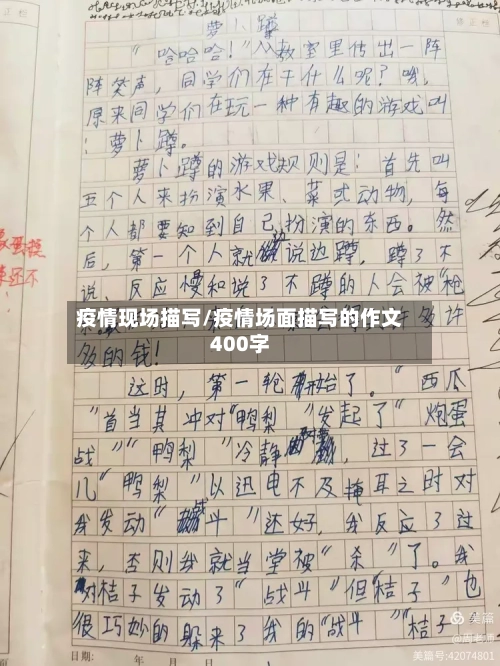 萝卜蹲
"哈哈哈!"从教室里传出一阵
阵笑声,同学们在干什么呢?哦,
原来同学们在玩一种有趣的游戏叫
:萝卜蹲。
萝卜蹲的游戏规则是:首先叫
五个人来扮演水果、菜或动物,每
个人都要知到自己扮演的东西。然
后,第一个人就边说边蹲,蹲了不
说、反应慢和说了不蹲的人会被"枪
疫情现场描写/疫情场面描写的作文
400字
多的钱!
这时,第一轮开始了。"西瓜
"首当其冲对"鸭梨"发起了"炮蛋
战""鸭梨"冷静,过了一会
儿"鸭梨"以迅电不及掩耳之时对
我发动"战斗"还好,我反应了过
来,否则我就当堂被"杀"了。我
对桔子发动了"战斗"但"桔子"也
很巧妙的躲来了我的"战斗""桔子
日期:
年
美篇
美篇号:42074801